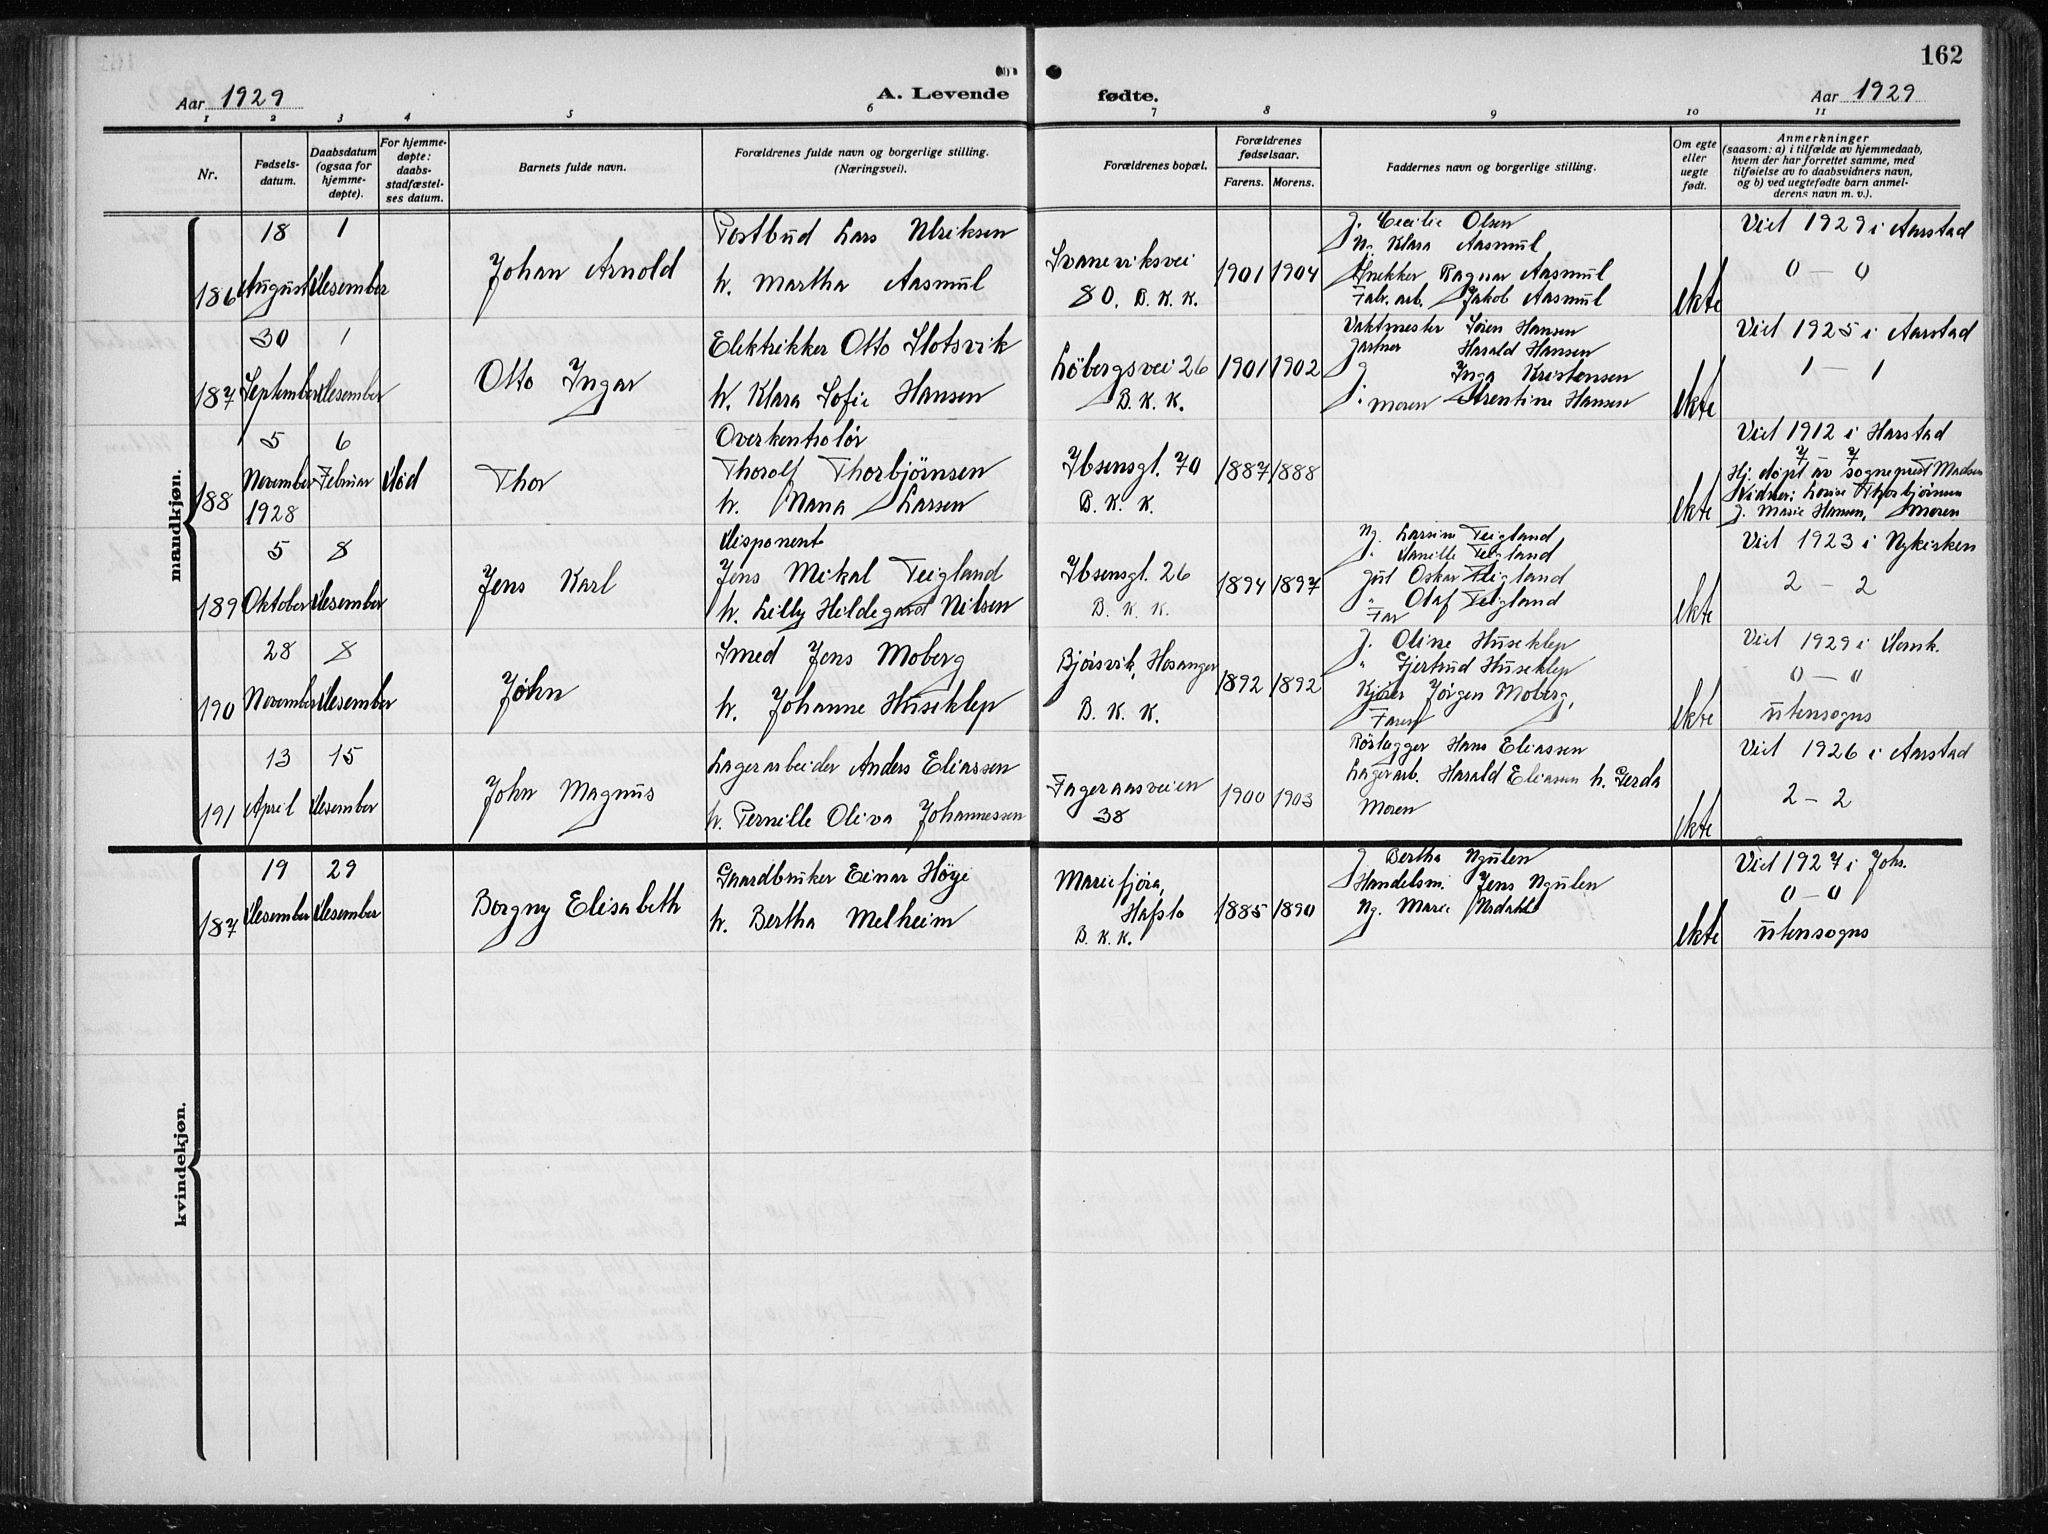 162
Aar 1929
A. Levende
fødte.
Aar 1929
1 2 3 4 5 6 7 8 9 10 11
Nr.
Fødsels-
datum.
Daabsdatum
(ogsaa for
hjemme-
døpte).
For hjemme-
døpte:
daabs-
stadfæstel-
ses datum.
Barnets fulde navn.
Forældrenes fulde navn og borgerlige stilling.
(Næringsvei).
Forældrenes bopæl.
Forældrenes
fødselsaar.
Farens. Morens.
Faddernes navn og borgerlige stilling.
Om egte
eller
uegte
født.
Anmerkninger
(saasom: a) i tilfælde av hjemmedaab,
hvem der har forrettet samme, med
tilføielse av to daabsvidners navn,
og b) ved uegtefødte barn anmel-
derens navn m. v.).
mandkjøn.
186
18
August
1
Desember
Johan Arnold
Postbud Lars Ulriksen
h. Martha Aasmul
Svaneviksvei
80. B. K. K.
1901 1904
J. Cecilie Olsen
Ug. Klara Aasmul
Snekker Ragnar Aasmul
Fabr. arb. Jakob Aasmul
ekte
Viet 1929 i Aarstad
0 — 0
187
30
September
1
Desember
Otto Ingar
Elektrikker Otto Slotsvik
h. Klara Sofie Hansen
Löbergsvei 26
B. K. K.
1901 1902
Vaktmester Sören Hansen
Gartner Harald Hansen
J. Inga Kristensen
J. Moren Arentine Hansen
ekte
Viet 1925 i Aarstad
1 — 1
188
5
November
1928
6
Februar
Död
Thor
Overkontrolör
Thorolf Thorbjörnsen
h. Nana Larsen
Ibsensgt. 70
B. K. K.
1887 1888
ekte
Viet 1912 i Harstad
7 — 7
Hj. döpt av sogneprest Madsen
Vidner: Lovise Thorbjörnsen
J. Marie Hansen, Moren
189
5
Oktober
8
Desember
Jens Karl
Disponent
Jens Mikal Teigland
h. Lilly Hildegard Nilsen
Ibsensgt. 26
B. K. K.
1894 1897
Ug. Larsine Teigland
J. Teigland
Oskar Teigland
" Olaf Teigland
Far
ekte
Viet 1923 i Nykirken
2 — 2
190
28
November
8
Desember
John
Smed Jens Moberg
h. Johanne Huseklep
Bjørsvik, Hosanger
B. K. K.
1892 1892
J. Oline Huseklep
" Gjertrud Huseklep
Jörgen Moberg,
Faren
ekte
Viet 1929 i Domk.
0 — 0
utensogns
191
13
April
15
Desember
John Magnus
Lagerarbeider Anders Eliassen
h. Pernille Oliva Johannessen
Fageraasveien
38
1900 1903
Rörlegger Hans Eliassen
Lagerarb. Harald Eliasen h. Gerda
Moren
ekte
Viet 1926 i Aarstad
2 — 2
kvindekjøn.
187
19
Desember
29
Desember
Borgny Elisabeth
Gaardbruker Einar Höyi
h. Bertha Melheim
Mariefjöra,
Hafslo
B. K. K.
1885 1890
J. Bertha Ngulen
Handelsm. Jens Ngulen
Ug. Marie Nadahl
ekte
Viet 1927 i Johs.
0 — 0
utensogns